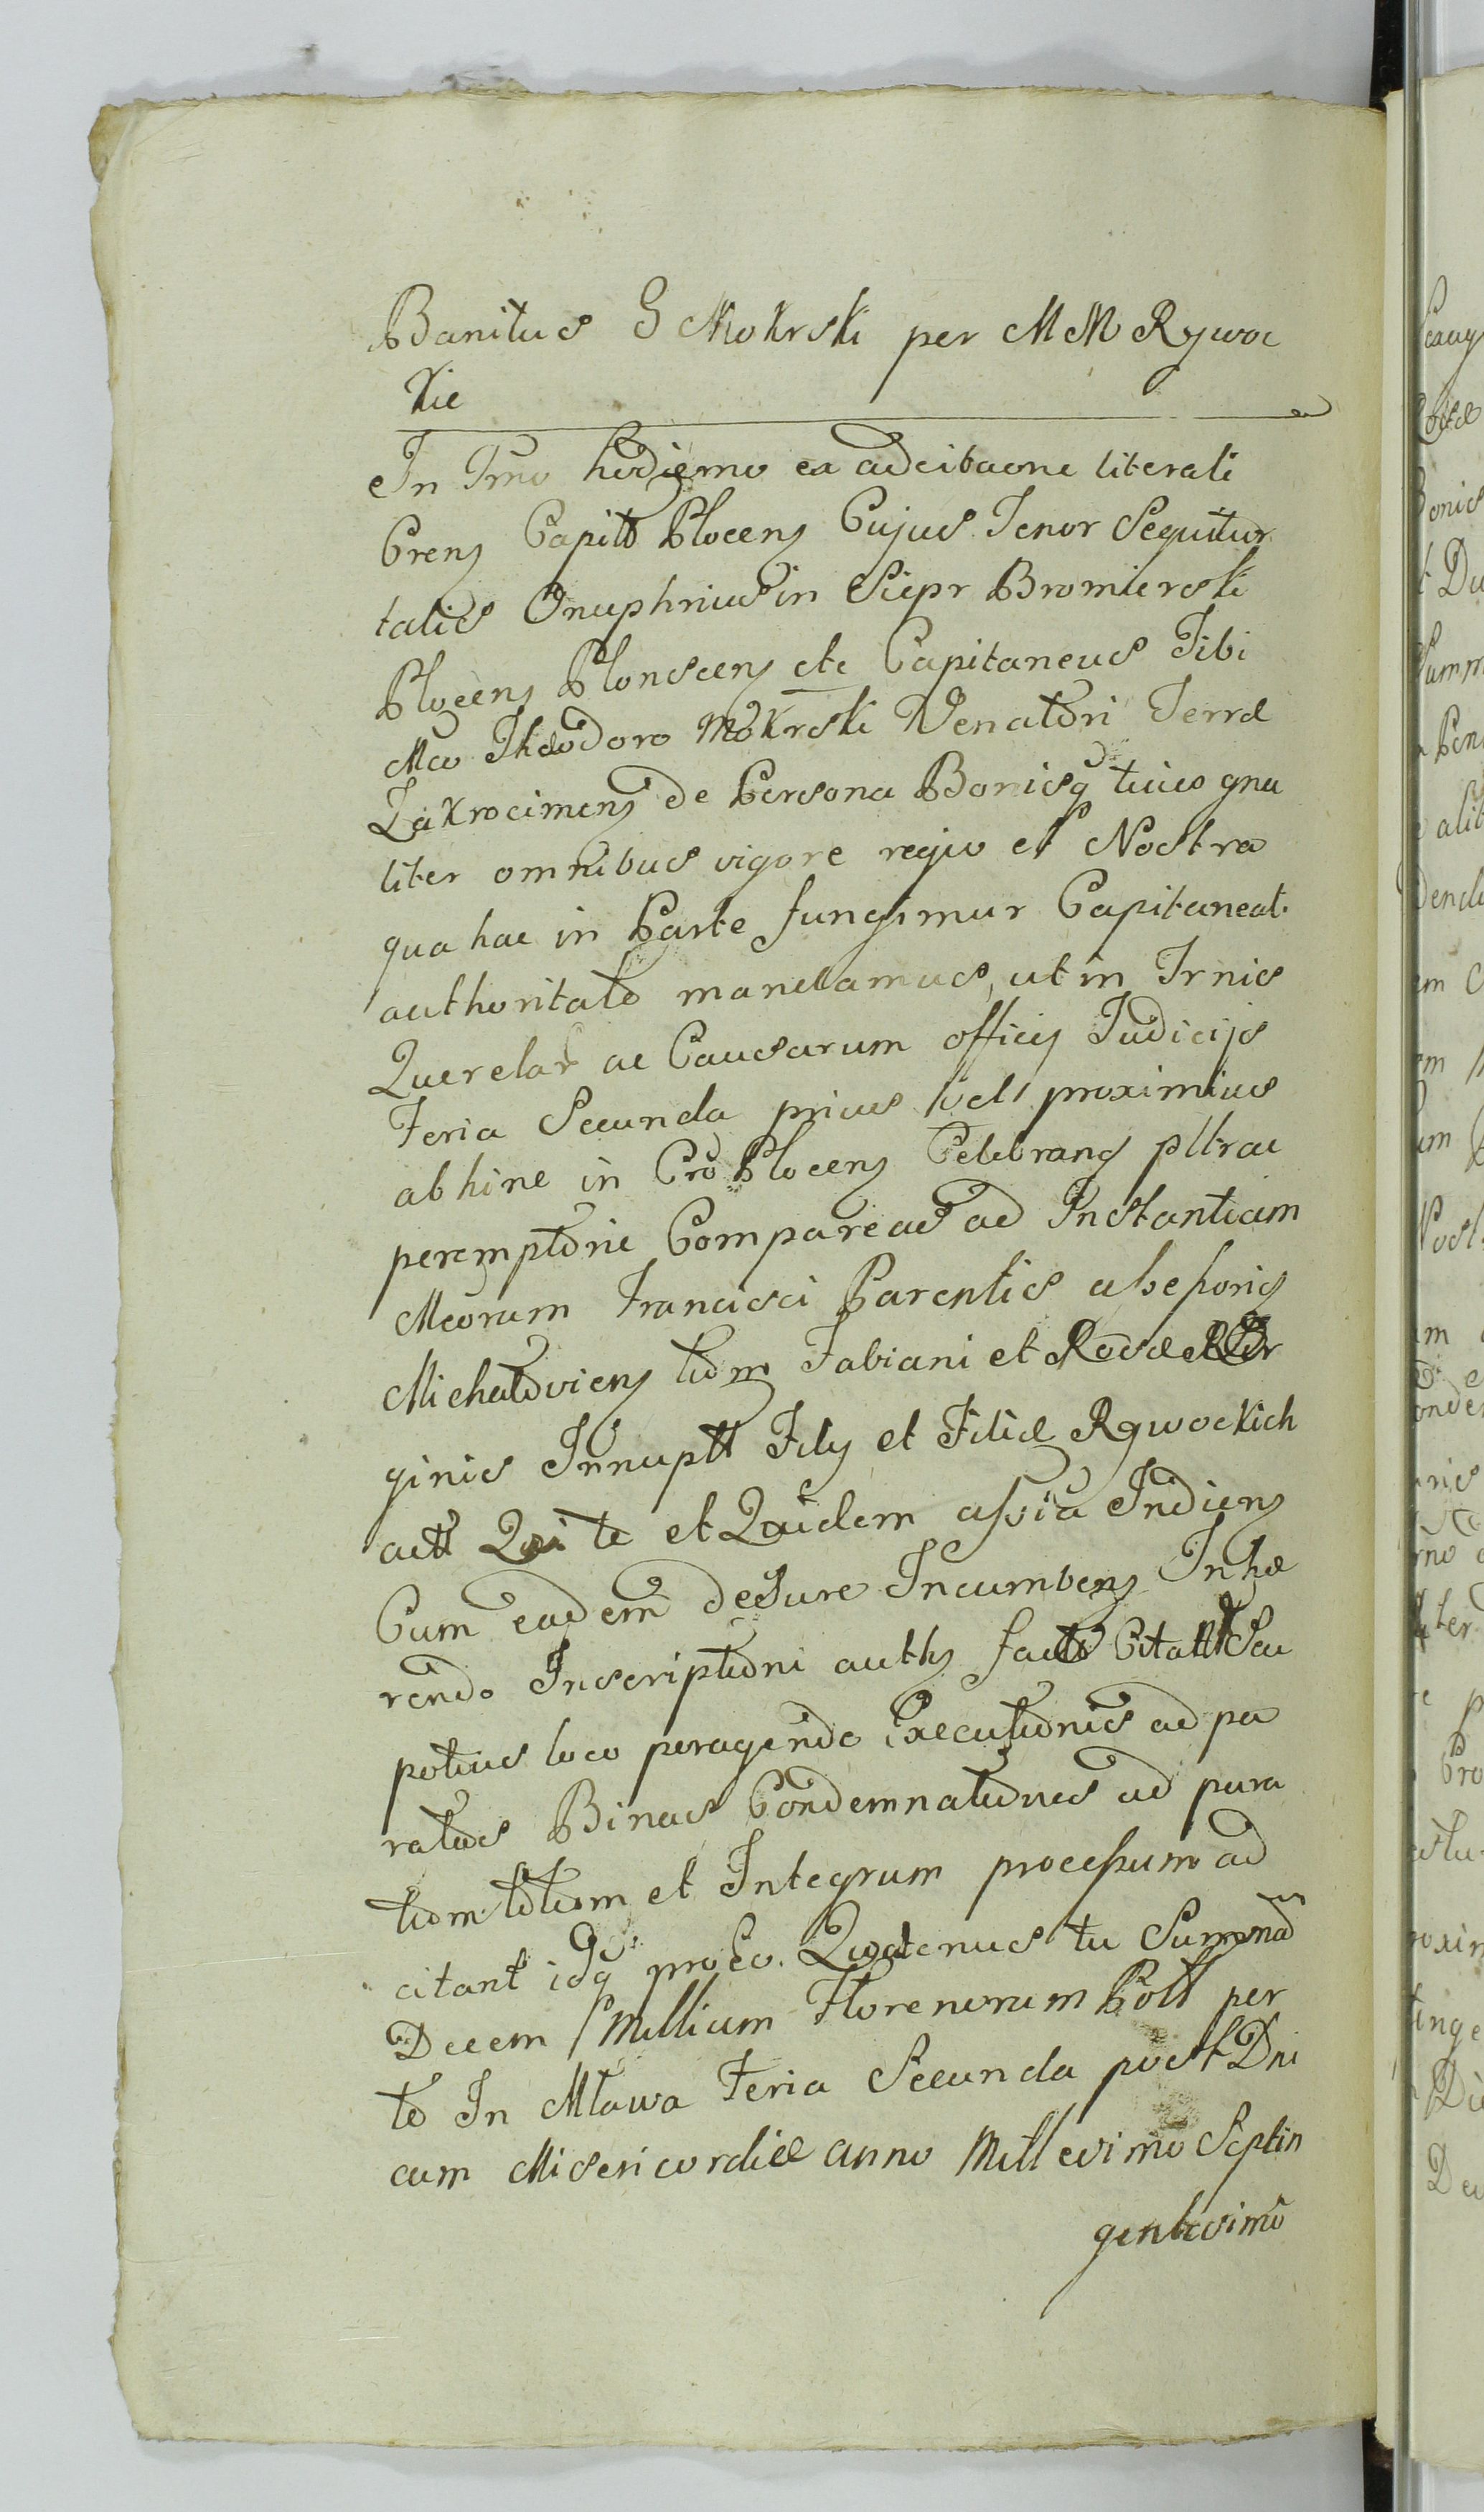 Banitus G Mokrski per MM Rywoc
kie
In Trno hodierno ex adcitaone literali
Crens Capitt Plocens Cujus Tenor Sequitur
talis Onuphrius in Siepr Bromierski
Plocens Plonscens etc Capitaneus Tibi
Mco Theodoro Mokrski Venatori Terræ
Zakrocimens de Persona Bonisq tuis gna
liter omnibus vigore regio et Nostra
qua hac in Parte fungimur Capitaneat.
authoritate mandamus, ut in Trnis
Querelar ac Causarum officy Judicijs
Feria Secunda prius vel proximius
abhinc in Cro Plocens Celebrang pltrac
peremptorie Compareas ad Instantiam
Mcorum Francisci Parentis
Michaloviens tum Fabiani et Rosæ Vir
ginis Innuptt Fily et Filiæ Rywockich
actt Qui te et Quidem assia Indiens
Cum eadem de Jure Incumbens Inhæ
rendo Inscriptioni auths factt Citattt Seu
potius loco peragendo Executionis ad pa
ratas Binas Condemnationes ad para
tum totum et Integrum processum ad
citant idq pro Eo. Quatenus tu Summam
Decem Millium Florenorum Poll per
te In Mlawa Feria Secunda post Dni
cam Misericordiæ anno Millesimo Septin
gentesimo